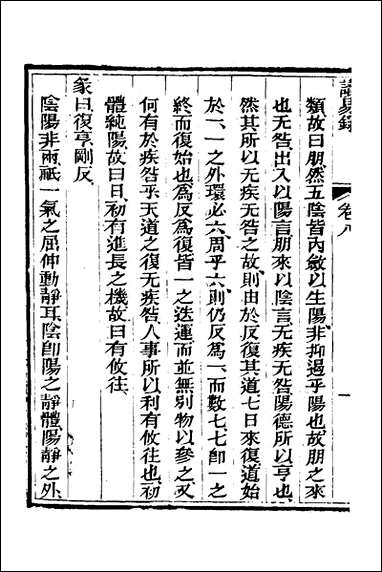 讀易錄
卷八
類故曰朋然五陰皆內斂以生陽非抑遏乎陽也故朋之來
也无咎出入以陽言朋來以陰言无疾无咎陽德所以亨也
然其所以无疾无咎之故則由於反復其道七日來復道始
於一一之外環必六周乎六則仍反爲一而數七七卽一之
終而復始也爲反爲復皆一之迭運而並無別物以參之又
何有於疾咎乎天道之復无疾咎人事所以利有攸往也初
體純陽故曰日初有進長之機故曰有攸往
彖曰復亨剛反
陰陽非兩祇一氣之屈伸動靜耳陰卽陽之靜體陽靜之外